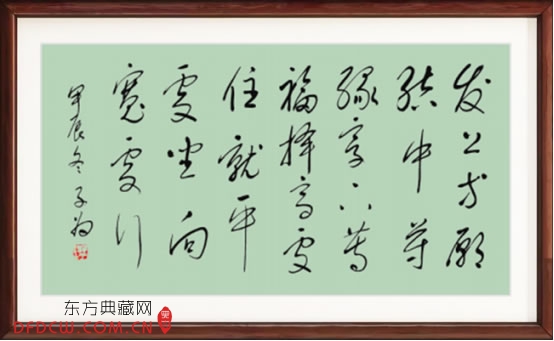 发上等愿
结中等
缘享下等
福择高处
住就平
处坐向
宽处行
甲辰冬子
东方典藏网
DFDCW.COM.CN